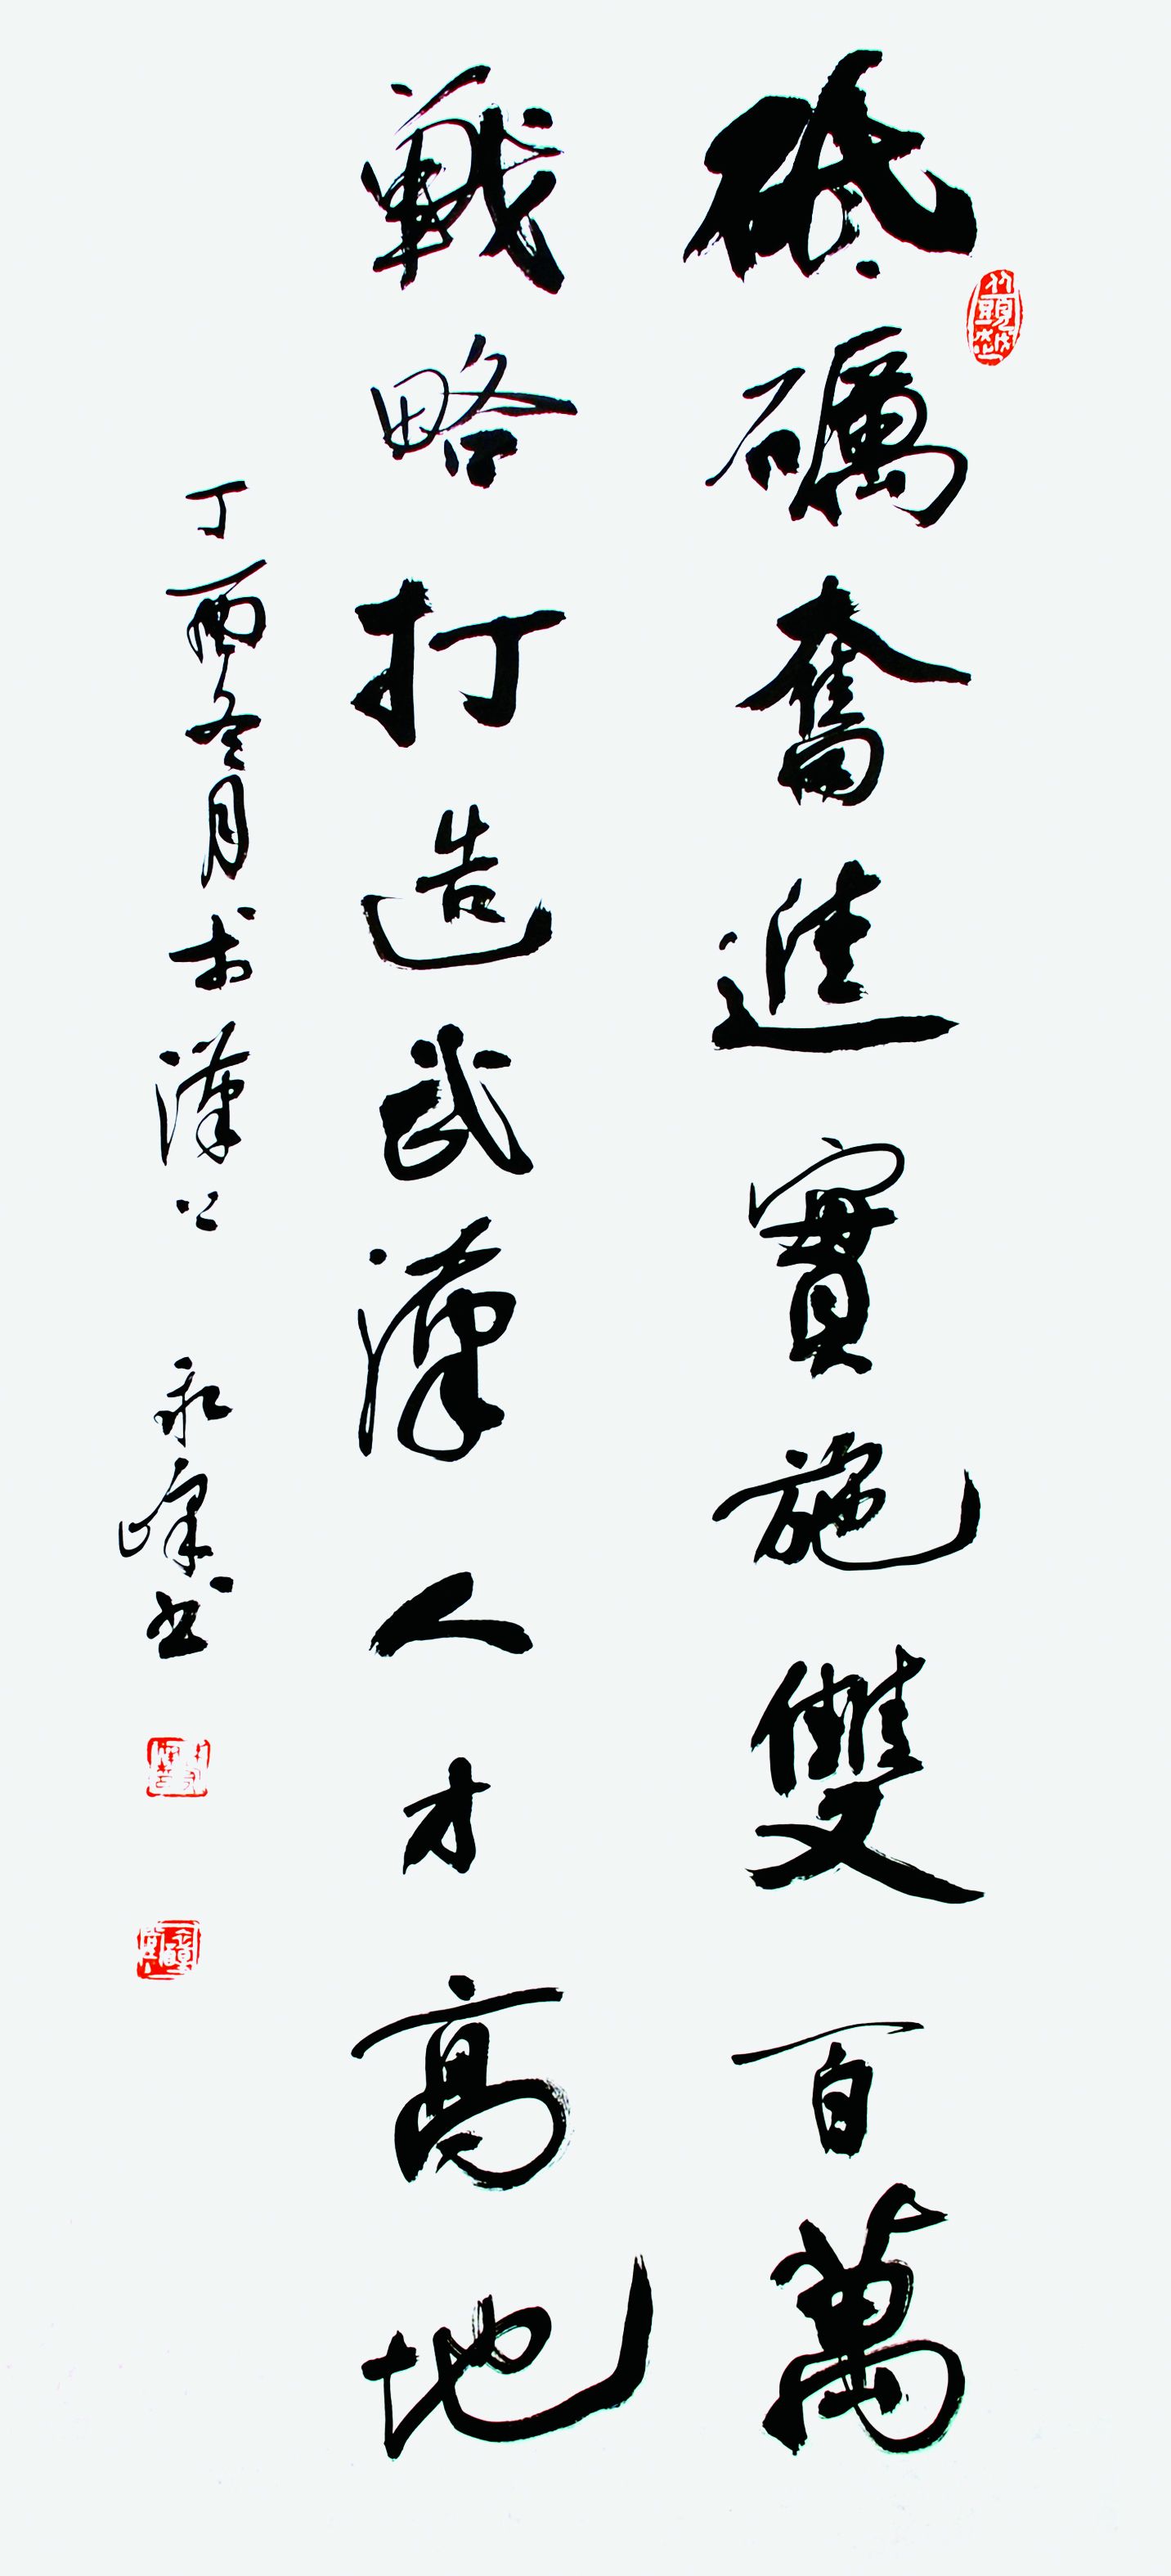 砥礪奮進實施雙百萬
戰略打造武漢人才高地
丁酉冬月於漢上
永峰書